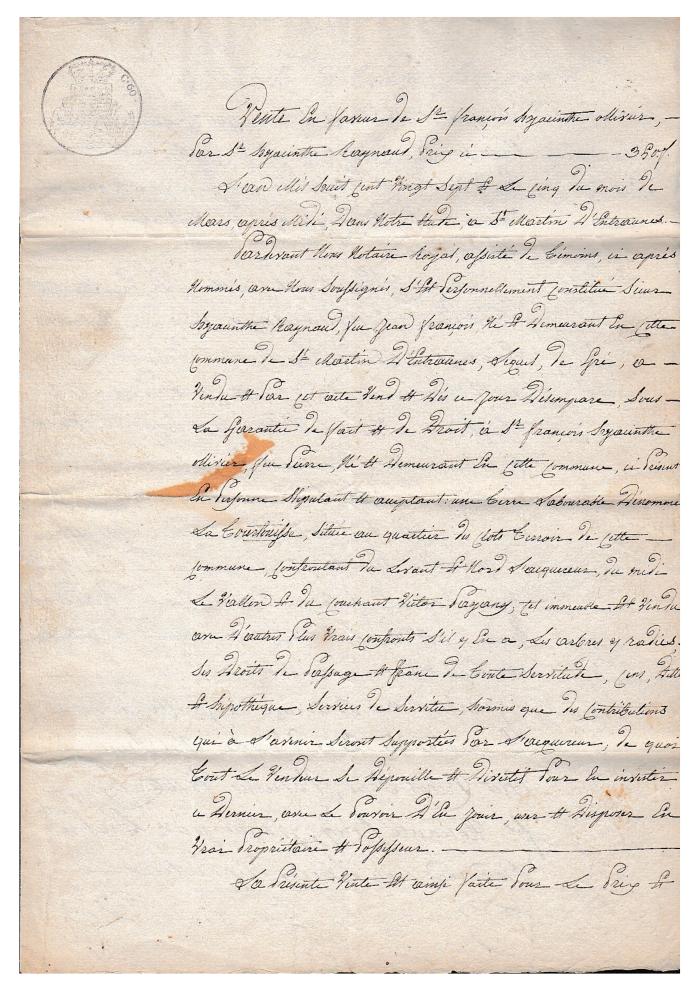 C. 60
Vente En faveur de Sr. françois hyacinthe ollivier, —
Par Sr. hyacinthe Raynaud, Prix ... 350 f.
L'an Mil huit cent Vingt Sept Et Le cinq du mois de
Mars, après Midi, Dans Notre Etude à St. Martin D'Entraunes. —
Pardevant Nous Notaire Royal, assisté de Témoins, ci après
Nommés, avec Nous Soussignés, S'Est Personnellement Constitué Sieur
hyacinthe Raynaud, feu Jean françois Né Et Demeurant En cette
commune de St. Martin D'Entraunes, Lequel, de Gré, a —
Vendu Et Par cet acte Vend Et Dès ce Jour Désempare, Sous —
La Garantie de fait Et de Droit, à Sr. françois hyacinthe
ollivier, feu Pierre, Né Et Demeurant En cette commune, ci Présent
En Personne Stipulant Et acceptant: une Terre Labourable Dénommée
La située au quartier des clots Terroir de cette —
commune, confrontant du Levant Et Nord L'acquereur, du midi
Le Vallon Et du couchant Victor Payany; cet immeuble Est Vendu
avec D'autres Plus Vrais confronts S'il y En a, Les arbres y radiés,
Ses Droits de Passage Et franc de Toute Servitude, cens, Dette
Et hipothèque, Services de Servitu, hormis que des Contributions
qui à L'avenir Seront Supportées Par L'acquereur; de quoi
Tout Le Vendeur Se Dépouille Et Divêtit Pour En investir
ce Dernier, avec Le Pouvoir D'En Jouir, user Et Disposer En
Vrai Propriétaire Et Possesseur. —
La Présente Vente Est ainsi faite Pour Le Prix Et